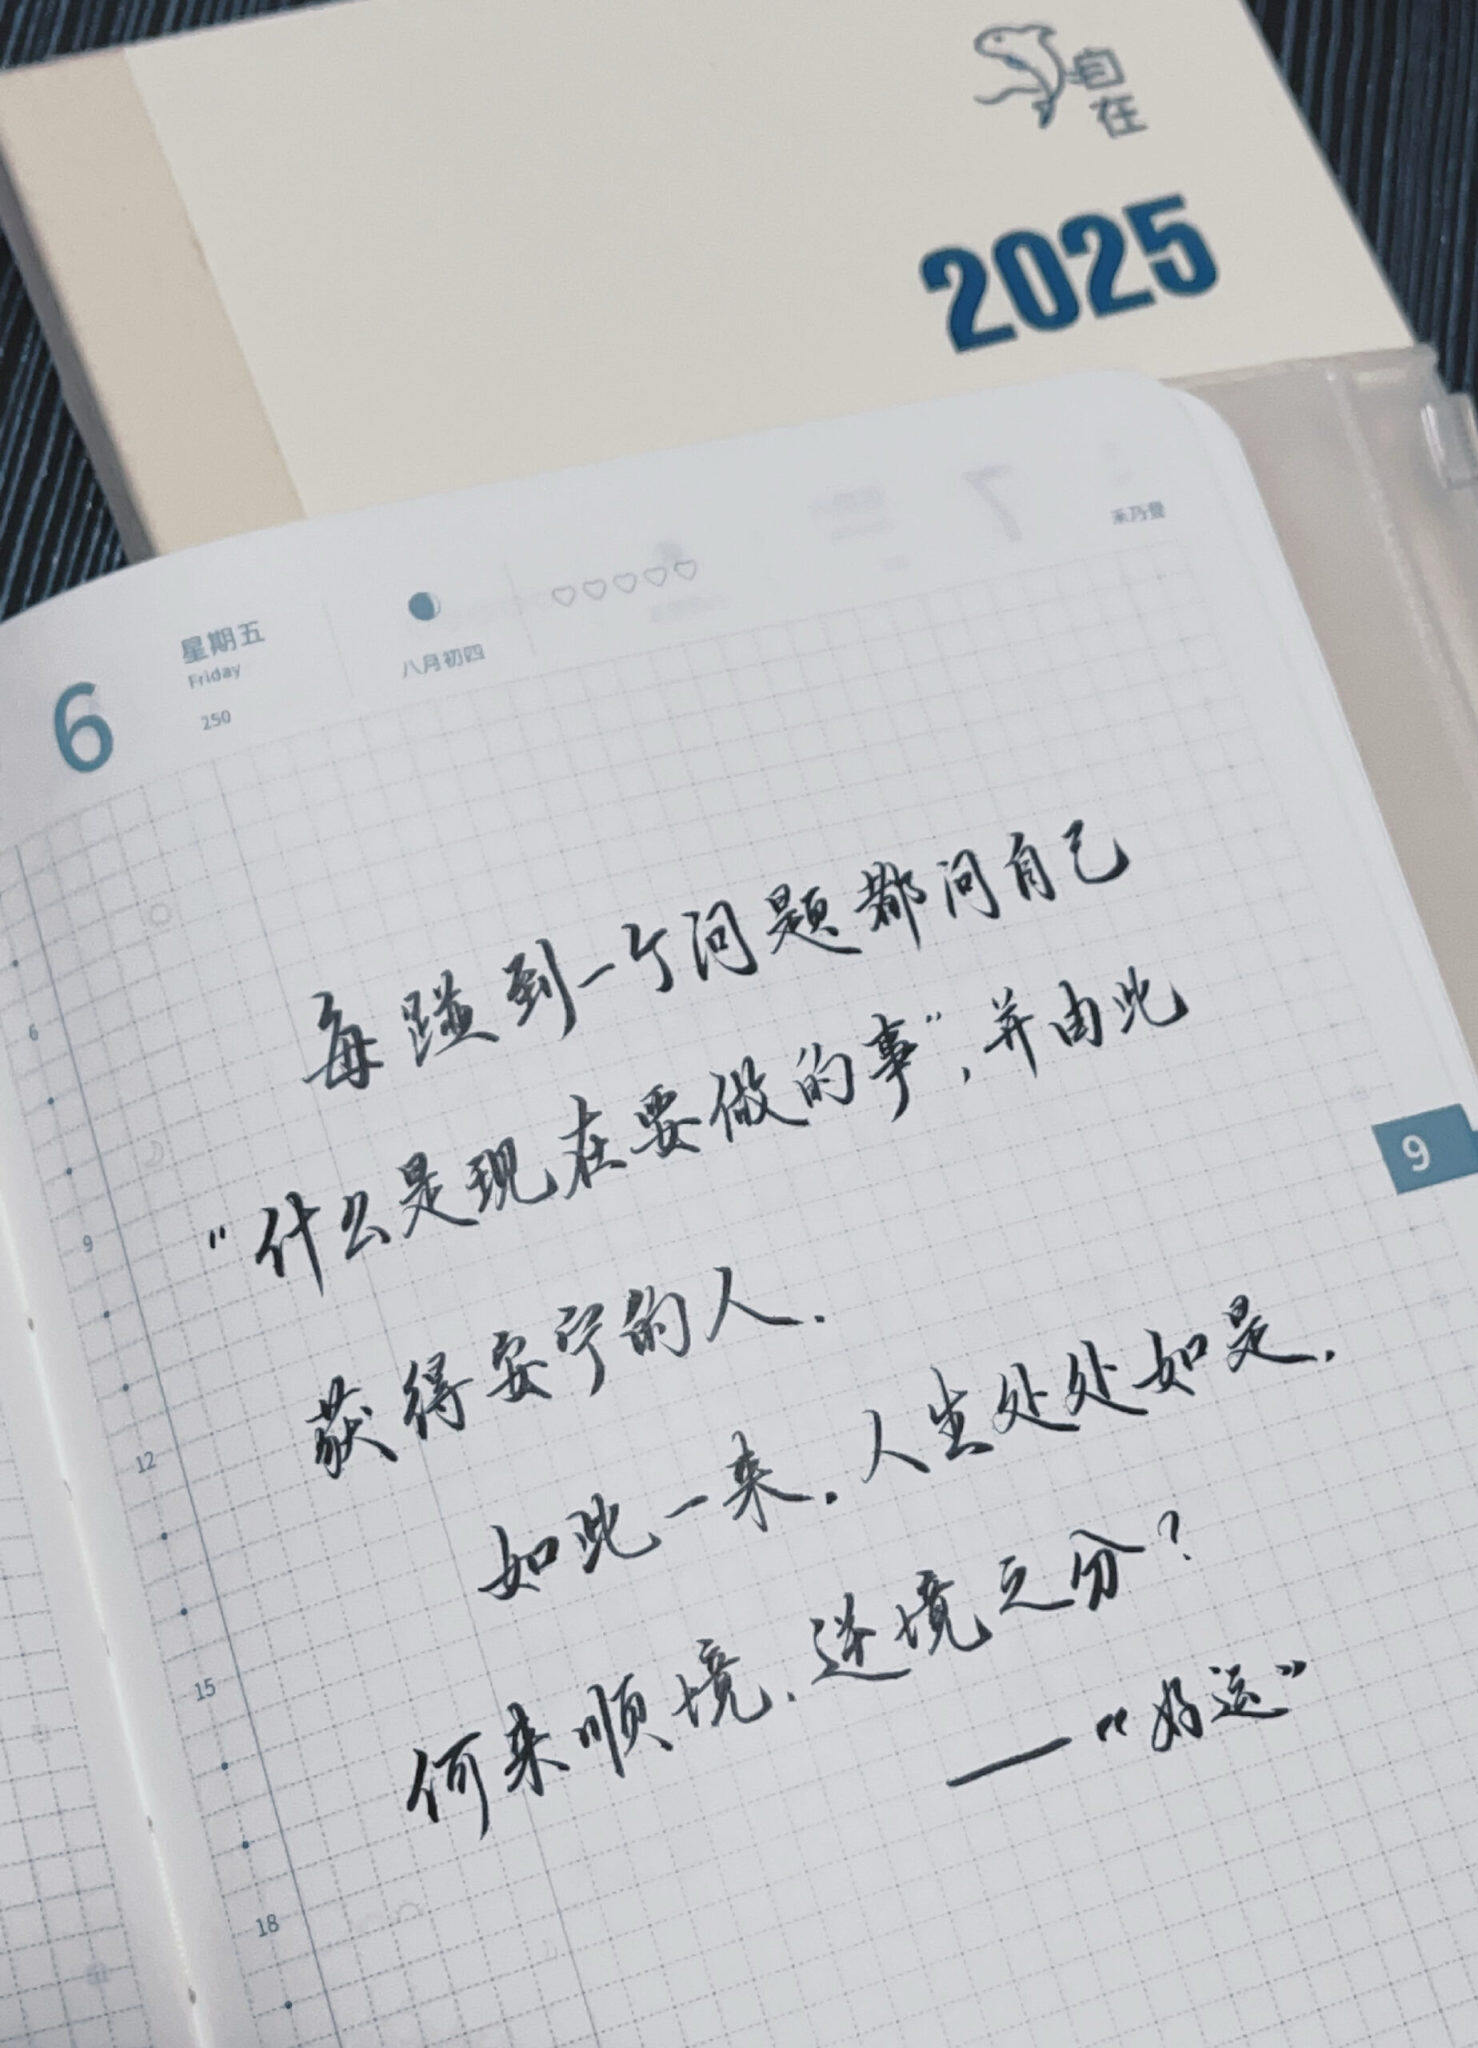 自
在
2025
禾乃登
6
星期五
Friday
250
八月初四
每碰到一个问题都问自己
“什么是现在要做的事”,并由此
获得安宁的人.
如此一来.人生处处如是.
何来顺境.逆境之分?
——“好运”
6
9
12
15
18
9